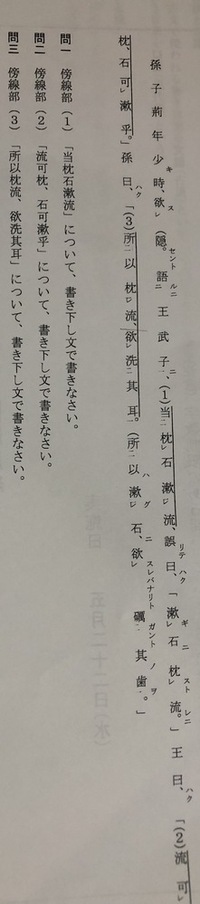 孫子荊年少時、欲レ隠。語ニ王武子一、(1)当ニ枕レ石漱レ流、誤曰、「漱レ石枕レ流。」王曰、「(2)流可レ
枕、石可レ漱乎。」孫曰、「(3)所ニ以枕レ流、欲レ洗ニ其耳。(所ニ以漱レ石、欲レ礪ニ其歯一。」
問一 傍線部(1)「当枕石漱流」について、書き下し文で書きなさい。
問二 傍線部(2)「流可枕、石可漱乎」について、書き下し文で書きなさい。
問三 傍線部(3)「所以枕流、欲洗其耳」について、書き下し文で書きなさい。